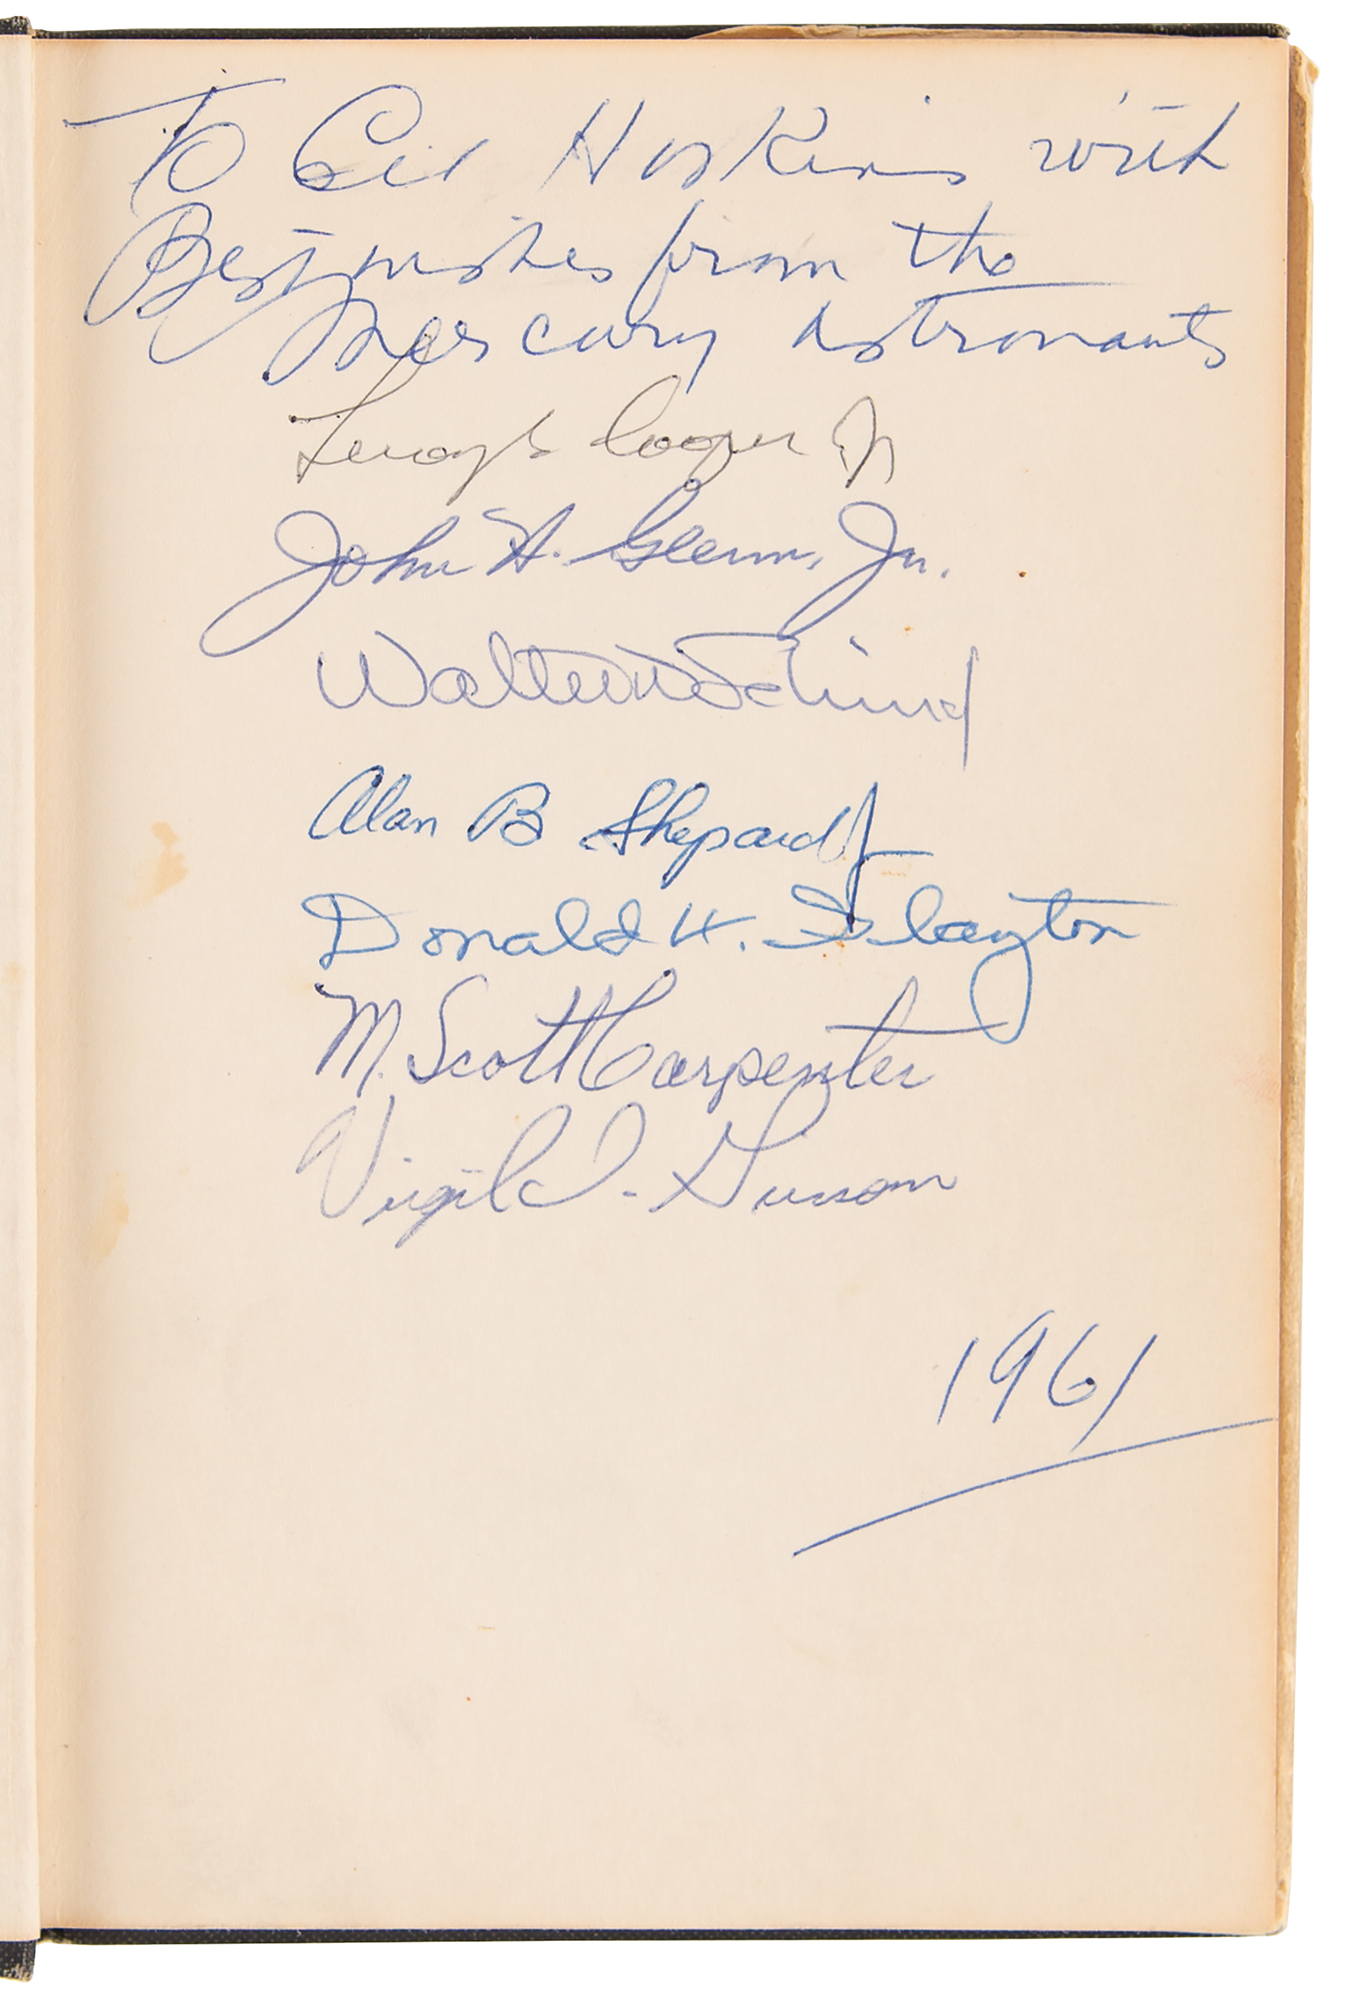 To Cecil Hoskins with
Best wishes from the
Mercury Astronauts
Leroy G Cooper Jr
John H. Glenn, Jr.
Walter M Schirra Jr
Alan B Shepard Jr
Donald K. Slayton
M. Scott Carpenter
Virgil I. Grissom
1961